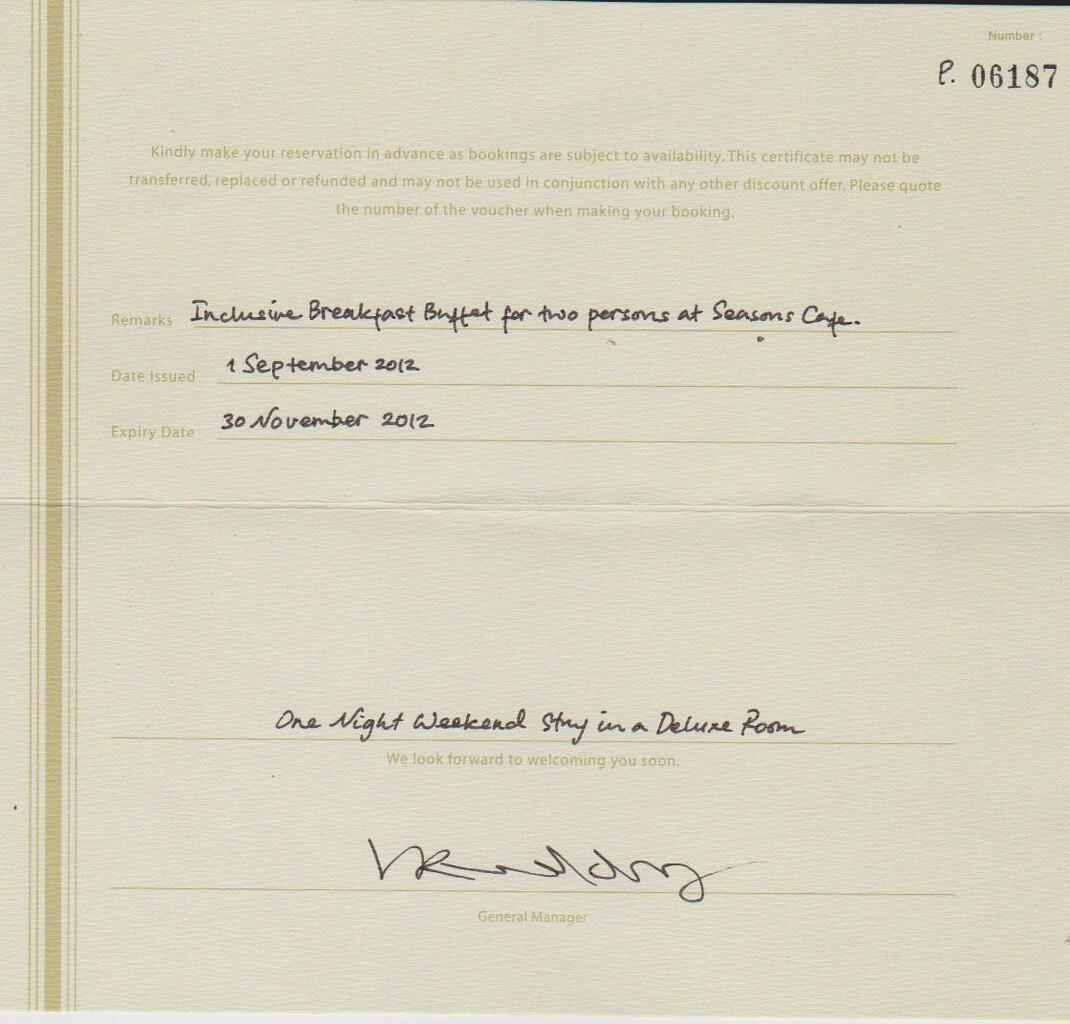 Number :
P. 06187
Kindly make your reservation in advance as bookings are subject to availability. This certificate may not be
transferred, replaced or refunded and may not be used in conjunction with any other discount offer. Please quote
the number of the voucher when making your booking.
Remarks Inclusive Breakfast Buffet for two persons at Seasons Cafe.
Date Issued 1 September 2012
Expiry Date 30 November 2012
One Night Weekend Stay in a Deluxe Room
We look forward to welcoming you soon.
General Manager